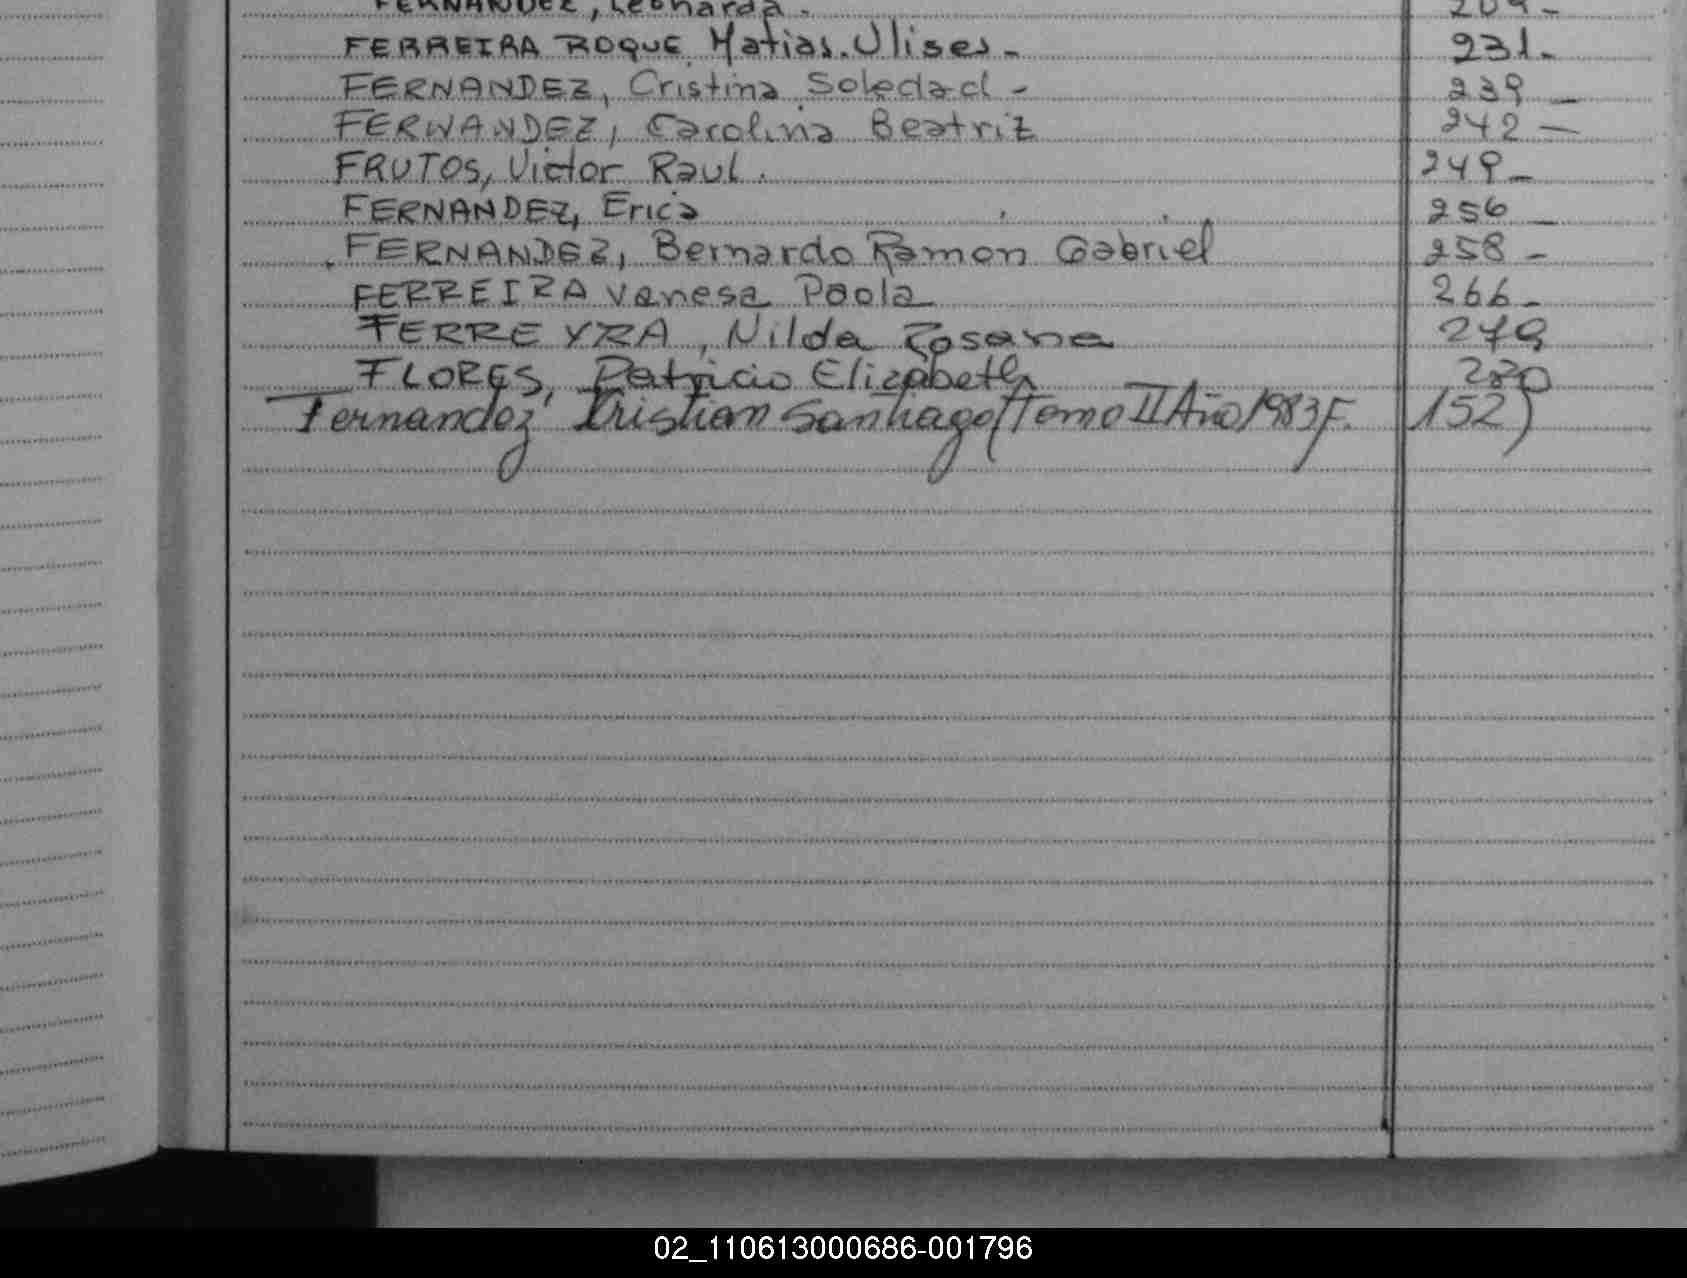 FERNANDEZ, Leonarda. 209-
FERREIRA ROQUE Matias Ulises - 231-
FERNANDEZ, Cristina Soledad - 239 -
FERNANDEZ, Carolina Beatriz 242 -
FRUTOS, Victor Raul. 249-
FERNANDEZ, Erica 256 -
FERNANDEZ, Bernardo Ramon Gabriel 258 -
FERREIRA Vanesa Paola 266-
FERREYRA, Nilda Rosana 279
FLORES, Patricia Elizabeth 280
Fernandez, Cristian Santiago (Tomo II Año 1983 F. 152)
02_110613000686-001796